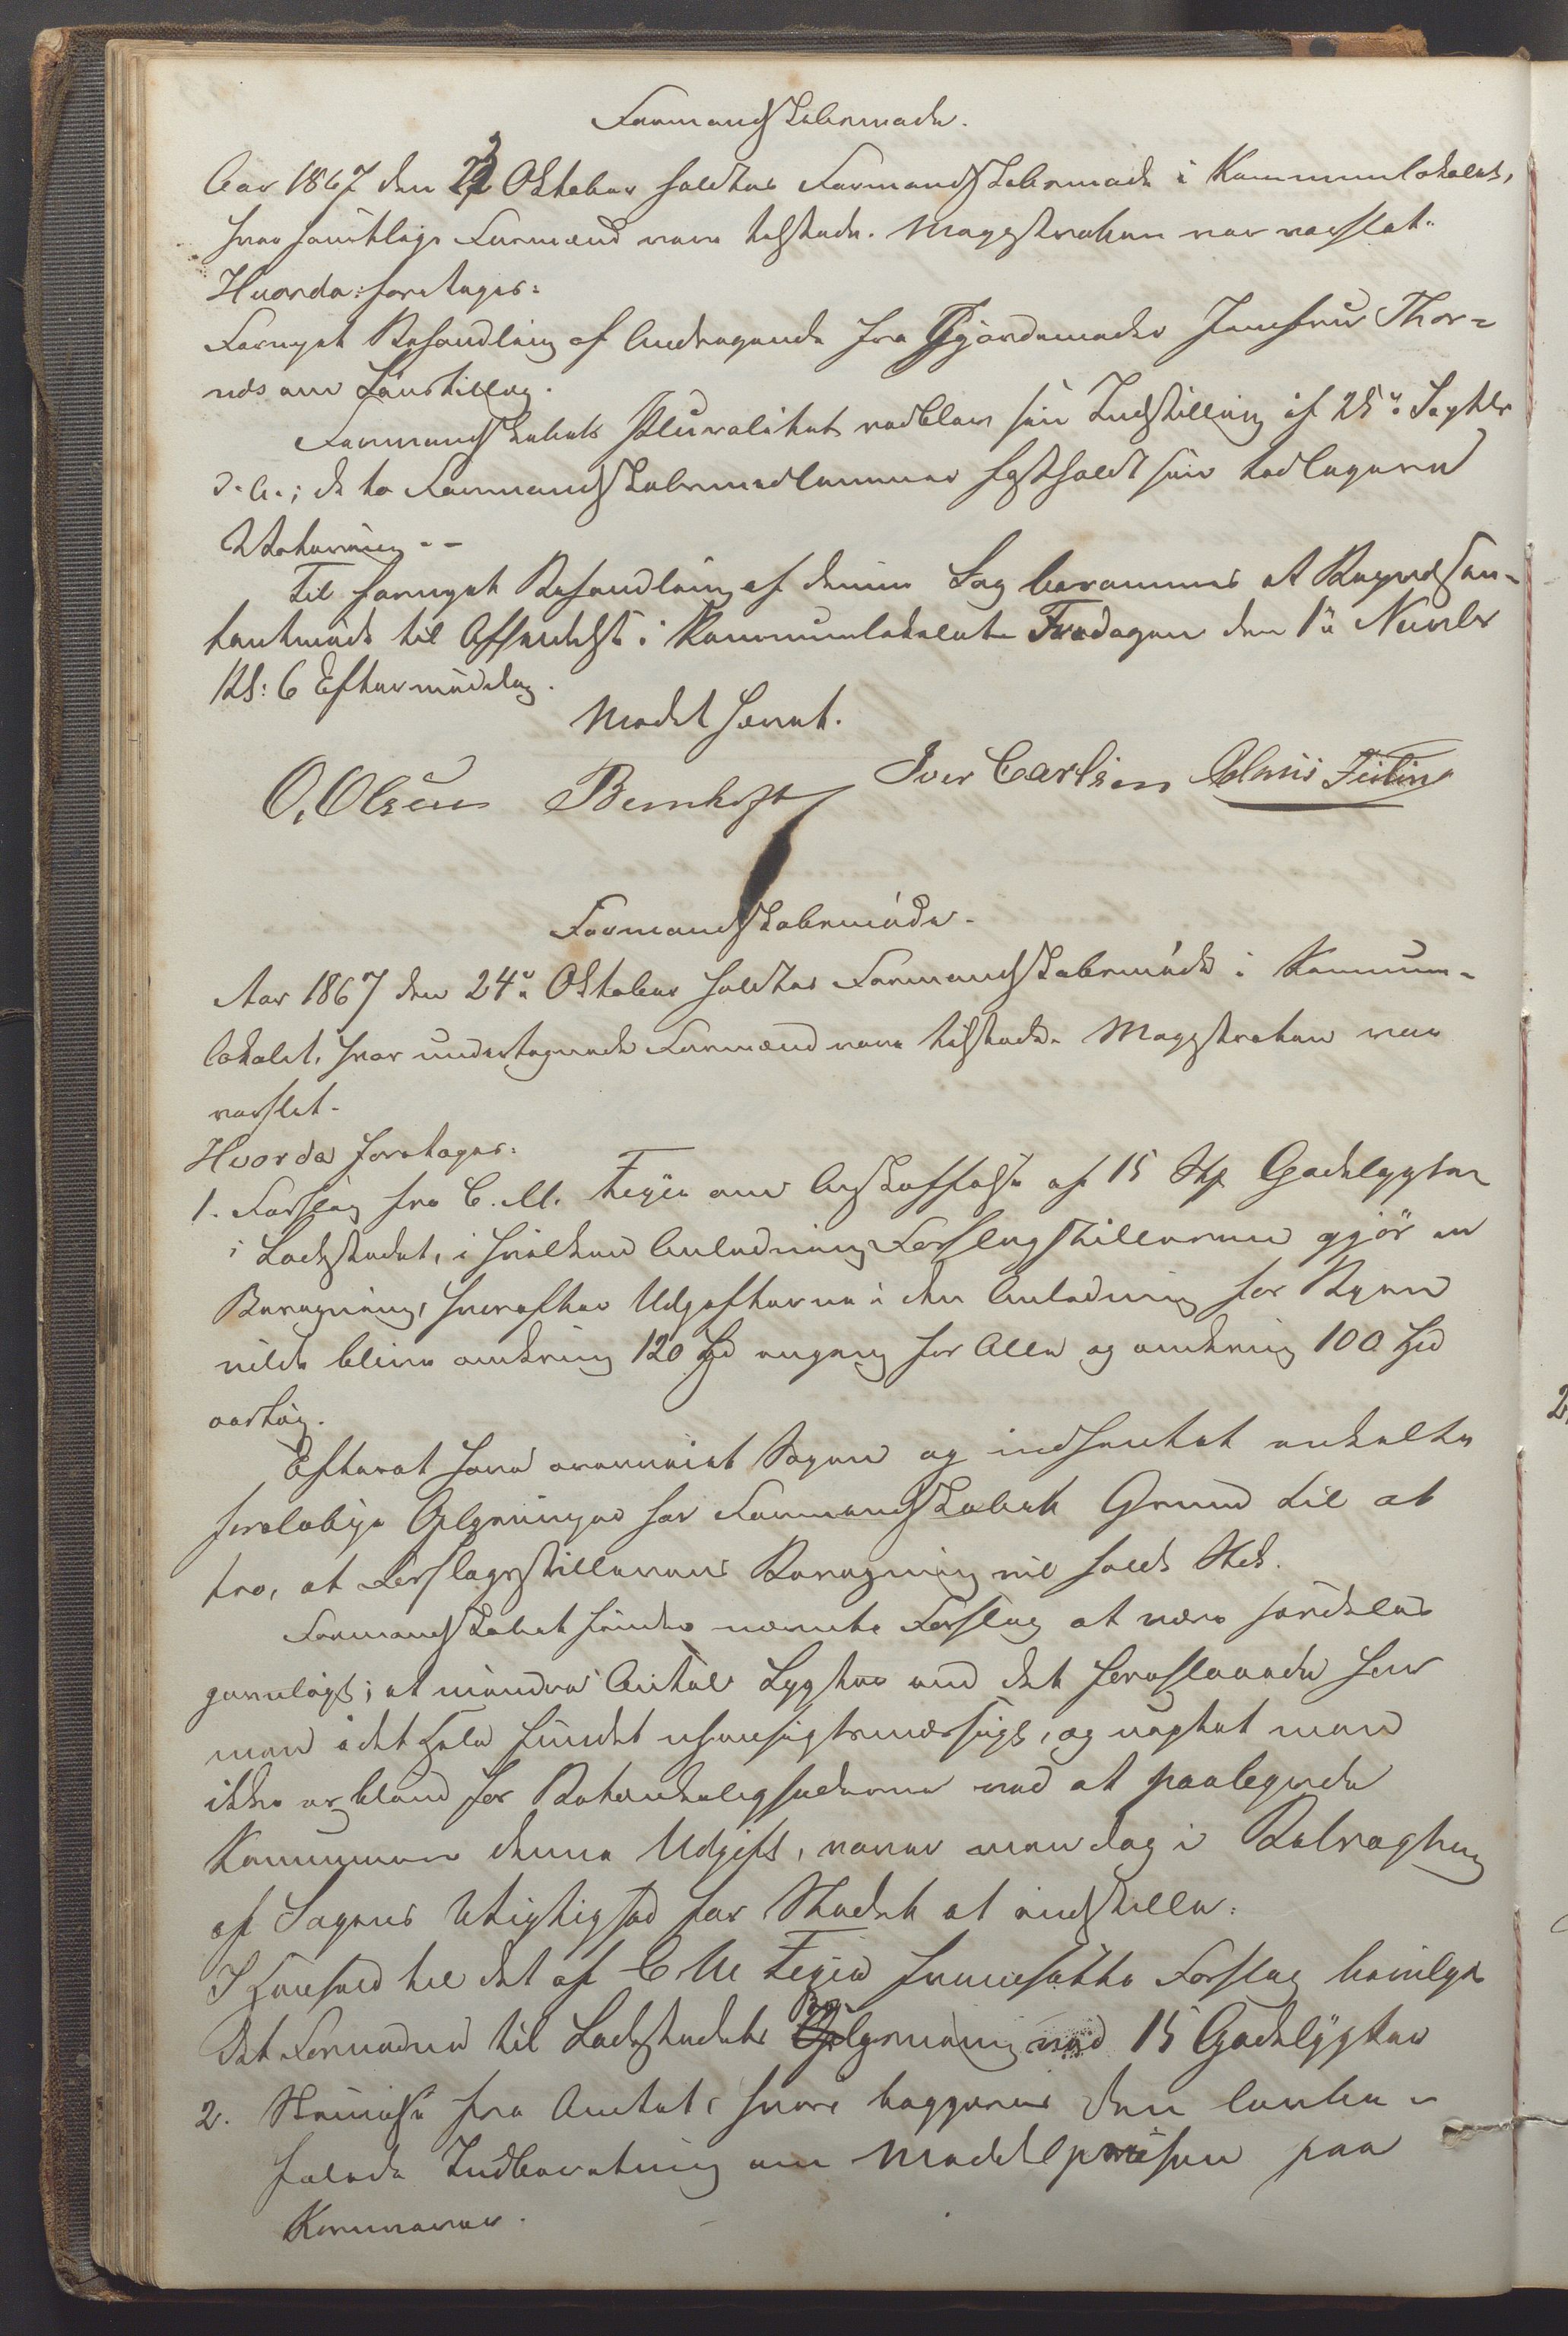 Formandskabsmøde.
Aar 1867 den 22 Oktober holdtes Formandskabsmøde i Kommunelokalet,
hvor samtlige Formænd vare tilstede. Magistraten var varslet.
Hvorda foretages:
Fornyet Behandling af Andragende fra Gjordemoder Jomfru Thor-
nes om Lønstillæg.
Formandskabets Pluralitet vedblev sin Indstilling af 25de Septbr
d. A.; de to Formandskabsmedlemmer fastholdt sin tidligere
Votering. -
Til fornyet Behandling af denne Sag berammes et Repræsen-
tantmøde til Afholdelse i Kommunelokalet Fredagen den 1ste Novbr
Kl: 6 Eftermiddag.
Mødet hævet.
O. Olsen Bernhoft Iver Carlsen
Formandskabsmøde.
Aar 1867 den 24de Oktober holdtes Formandskabsmøde i Kommune-
lokalet, hvor undertegnede Formænd vare tilstede. Magistraten var
varslet.
Hvorda foretages:
1. Forslag fra C. M. Fejer om Anskaffelse af 15 Stk Gadelygter
i Ladestedet, i hvilken Anledning Forslagstilleren gjør en
Beregning, hvorefter Udgifterne i den Anledning for Byen
vilde blive omkring 120 Spd engang for Alle og omkring 100 Spd
aarlig.
Efterat have overveiet Sagen og indhentet enkelte
foreløbige Oplysninger har Formandskabet Grund til at
tro, at Forslagsstillerens Beregning vil holde Stik.
Formandskabet finder nævnte Forslag at være særdeles
gavnligt; et mindre Antal Lygter end det foreslaaede har
man i det Hele fundet uhensigtsmæssigt, og uagtet man
ikke er blind for Betænkelighederne ved at paalægge
Kommunen denne Udgift, vover man dog i Betragtning
af Sagens Vigtighed for Stedet at indstille:
I Henhold til det af C M Fejer fremsatte Forslag bevilges
det Fornødne til Ladestedets Belysning med 15 Gadelygter
2. Skrivelse fra Amtet, hvori begjæres den anbe-
falede Indberetning om Middelprisen paa
Kornvarer.